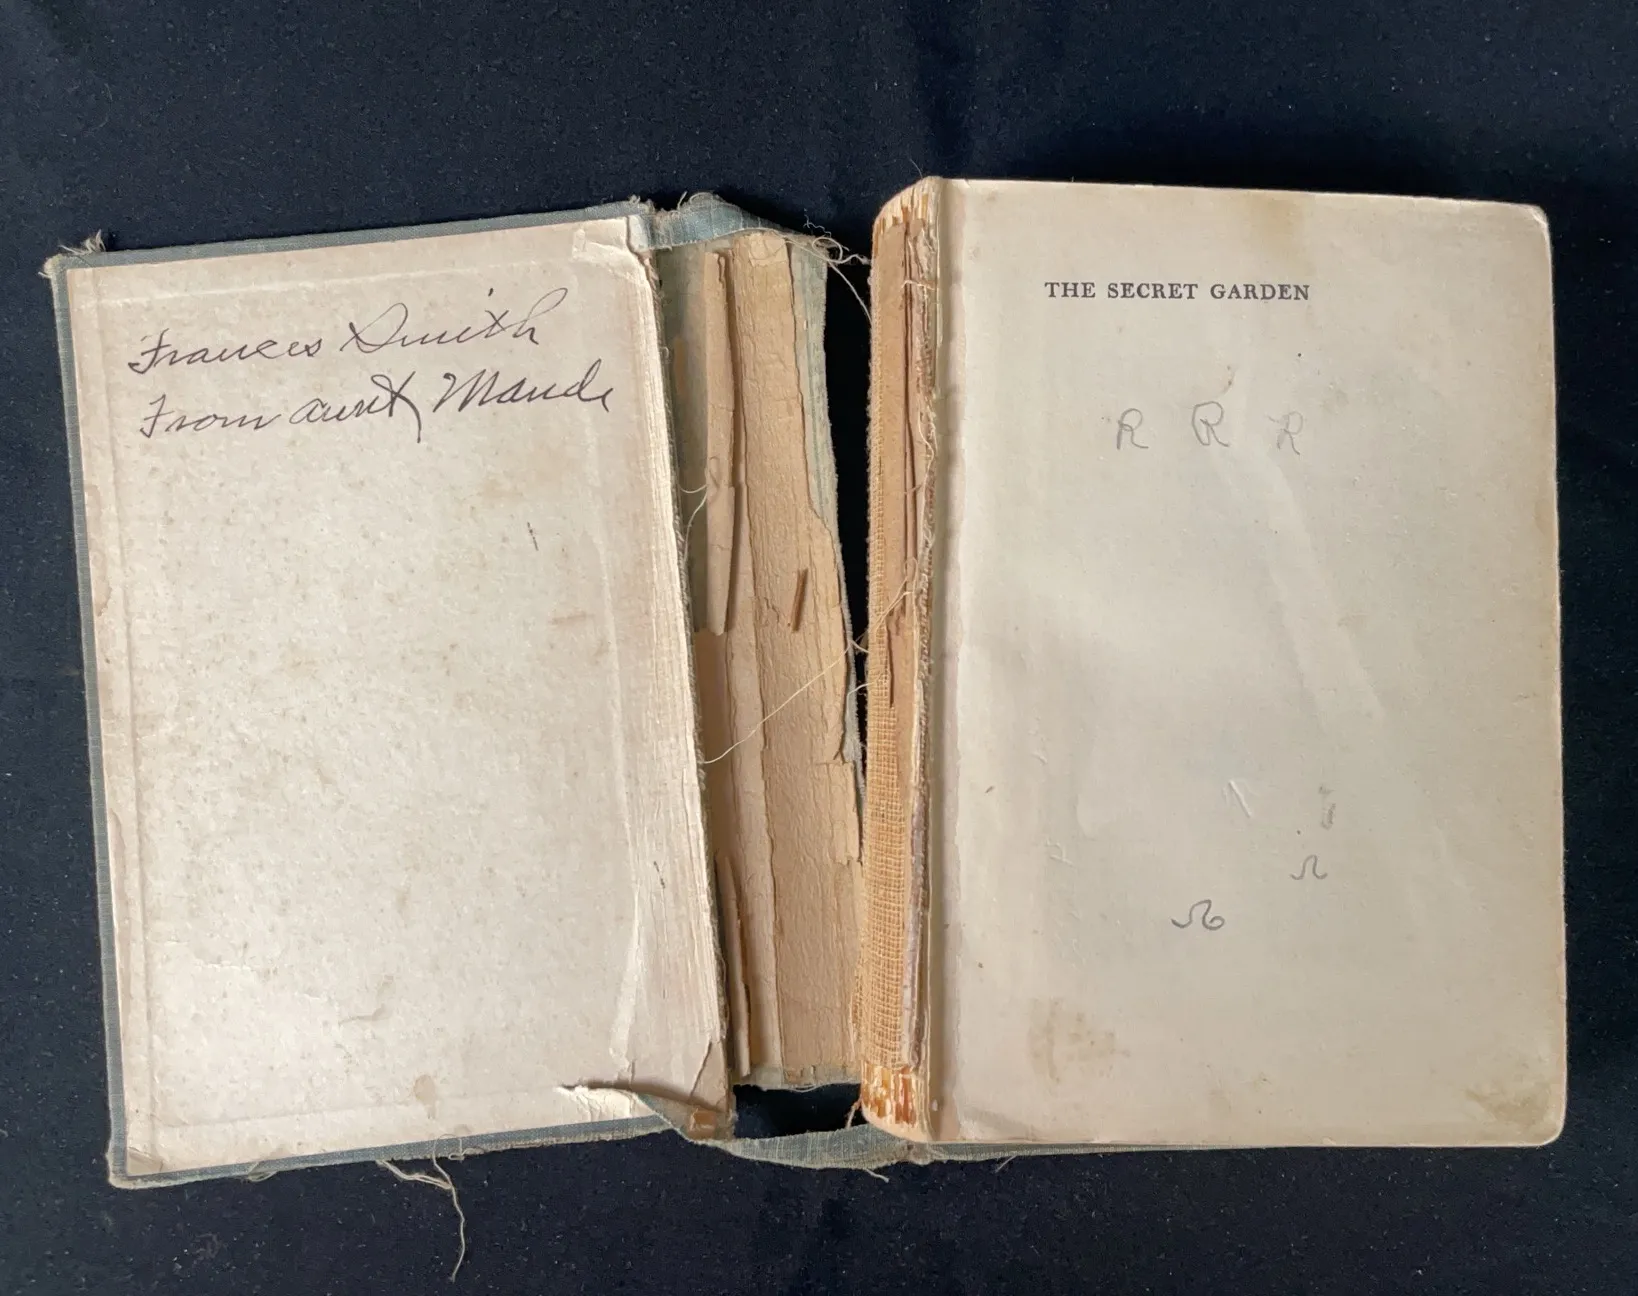 Frances Smith
From aunt Maude
THE SECRET GARDEN
R R R